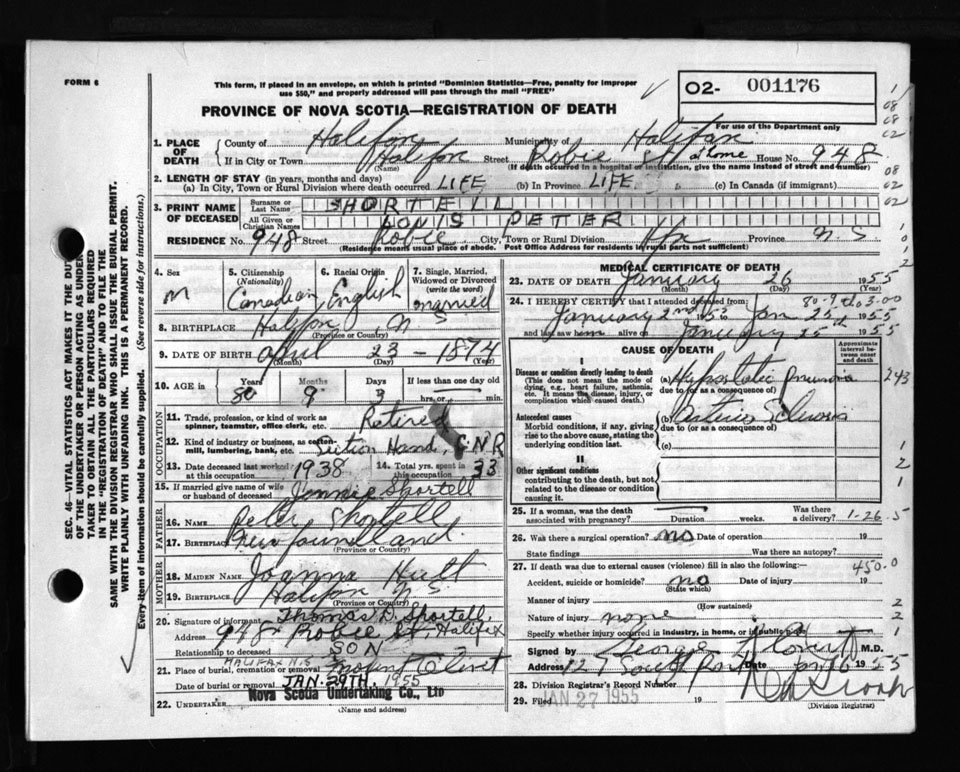 FORM 6
This form, if placed in an envelope, on which is printed "Dominion Statistics—Free, penalty for improper
use $50," and properly addressed will pass through the mail "FREE"
PROVINCE OF NOVA SCOTIA—REGISTRATION OF DEATH
02- 001176
For use of the Department only
1. PLACE OF DEATH County of Halifax Municipality of Halifax
If in City or Town Halifax Street Robie St at home House No. 948
(Name) (If death occurred in a hospital or institution, give the name instead of street and number)
2. LENGTH OF STAY (in years, months and days)
(a) In City, Town or Rural Division where death occurred LIFE (b) In Province LIFE (c) In Canada (if immigrant)
3. PRINT NAME OF DECEASED Surname or Last Name SHORTELL
All Given or Christian Names LOUIS PETER
RESIDENCE No. 948 Street Robie City, Town or Rural Division Hfx Province N.S
(Residence means usual place of abode. Post Office Address for residents in rural parts not sufficient)
4. Sex M
5. Citizenship (Nationality) Canadian
6. Racial Origin English
7. Single, Married, Widowed or Divorced (write the word) married
8. BIRTHPLACE Halifax N S
(Province or Country)
9. DATE OF BIRTH April 23 - 1874
(Month) (Day) (Year)
10. AGE in Years 80 Months 9 Days 3 If less than one day old hrs. or min.
OCCUPATION
11. Trade, profession, or kind of work as spinner, teamster, office clerk, etc. Retired
12. Kind of industry or business, as cotton-mill, lumbering, bank, etc. Section Hand, C.N.R
13. Date deceased last worked at this occupation 1938 14. Total yrs. spent in this occupation 33
15. If married give name of wife or husband of deceased Jennie Shortell
FATHER
16. NAME Peter Shortell
17. BIRTHPLACE Newfoundland
(Province or Country)
MOTHER
18. MAIDEN NAME Joanna Hutt
19. BIRTHPLACE Halifax N.S.
(Province or Country)
20. Signature of informant Thomas D. Shortell
Address 948 Robie St, Halifax
Relationship to deceased SON
21. Place of burial, cremation or removal HALIFAX N.S Mount Olivet
Date of burial or removal JAN. 29TH, 1955
22. UNDERTAKER Nova Scotia Undertaking Co., Ltd
(Name and address)
MEDICAL CERTIFICATE OF DEATH
23. DATE OF DEATH January 26 1955
(Month) (Day) (Year)
24. I HEREBY CERTIFY that I attended deceased from:
January 2nd 1955 to Jan 25th 1955
and last saw him alive on January 25th 1955
CAUSE OF DEATH
Approximate interval between onset and death
I
Disease or condition directly leading to death
(This does not mean the mode of dying, e.g., heart failure, asthenia, etc. It means the disease, injury, or complication which caused death.)
(a) Hypostatic pneumonia
due to (or as a consequence of)
Antecedent causes
Morbid conditions, if any, giving rise to the above cause, stating the underlying condition last.
(b)
due to (or as a consequence of)
(c)
II
Other significant conditions
contributing to the death, but not related to the disease or condition causing it.
25. If a woman, was the death associated with pregnancy? Duration weeks. Was there a delivery? 1-26 5
26. Was there a surgical operation? no Date of operation 19
State findings Was there an autopsy?
27. If death was due to external causes (violence) fill in also the following:— 450.0
Accident, suicide or homicide? no Date of injury 19
(State which)
Manner of injury
(How sustained)
Nature of injury none
Specify whether injury occurred in industry, in home, or in public place
Signed by George M.D.
Address 127 South Park Date Jan 26 1955
28. Division Registrar's Record Number
29. Filed JAN 27 1955 19
(Division Registrar)
SEC. 46—VITAL STATISTICS ACT MAKES IT THE DUTY
OF THE UNDERTAKER OR PERSON ACTING AS UNDER-
TAKER TO OBTAIN ALL THE PARTICULARS REQUIRED
IN THE "REGISTRATION OF DEATH" AND TO FILE THE
SAME WITH THE DIVISION REGISTRAR WHO SHALL ISSUE THE BURIAL PERMIT.
WRITE PLAINLY WITH UNFADING INK. THIS IS A PERMANENT RECORD.
Every item of information should be carefully supplied. (See reverse side for instructions.)